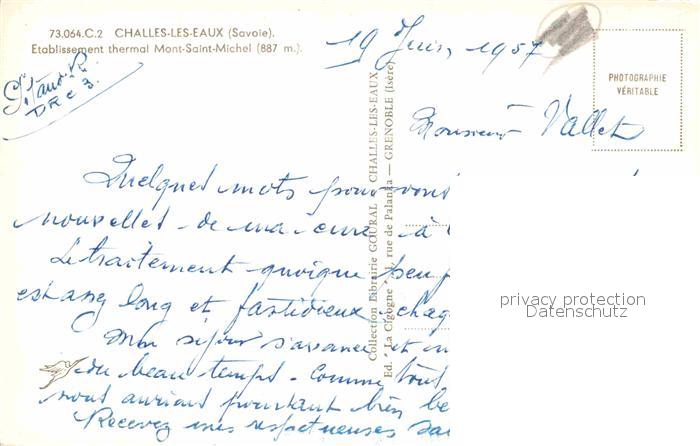 73.064.C.2 CHALLES-LES-EAUX (Savoie).
Etablissement thermal Mont-Saint-Michel (887 m.).
19 Juin 1957
PHOTOGRAPHIE
VÉRITABLE
Monsieur Vallet
Collection Librairie GOURAL - CHALLES-LES-EAUX
Ed. "La Cigogne" rue de Palanka — GRENOBLE (Isère)
Quelques mots pour vous
nouvelles de ma cure à
Le traitement quoique peu
est assez long et fastidieux. chaq
Mon séjour s'avance et
du beau temps. Comme tout
nous aurions pourtant bien be
Recevez mes respectueuses sa
privacy protection
Datenschutz